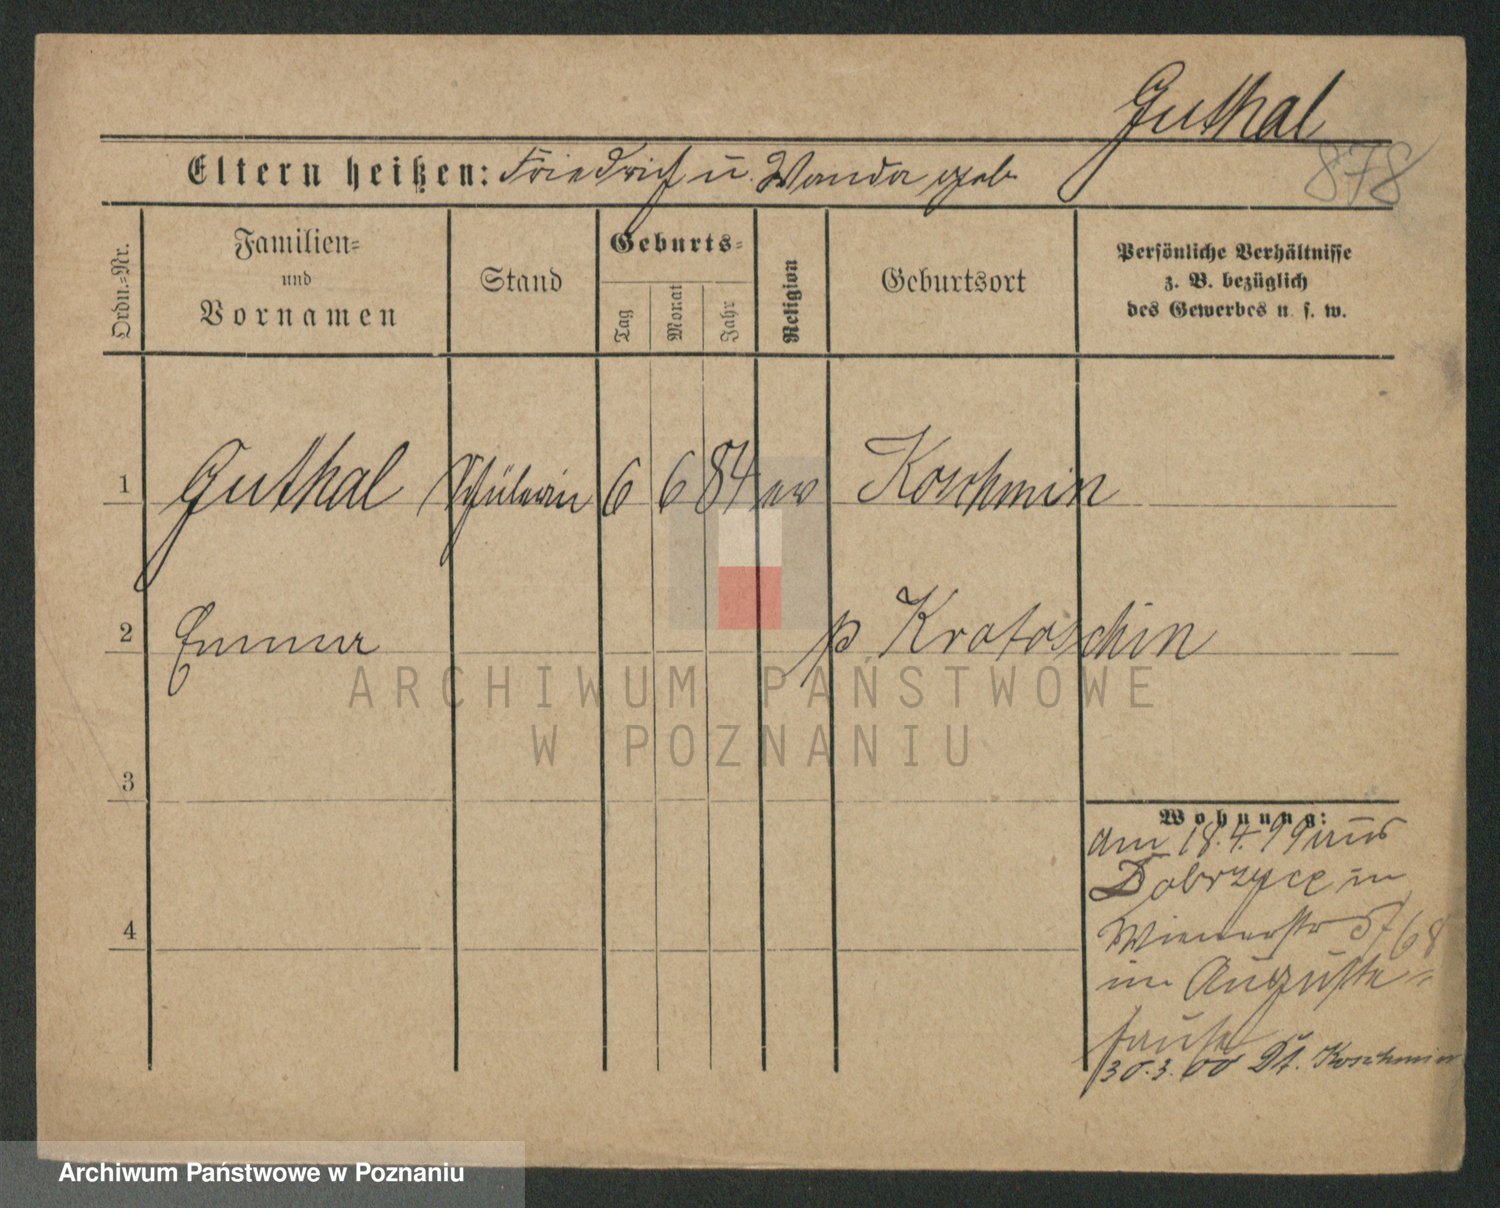 Guthal
878
Eltern heißen: Friedrich u. Wanda geb.
Ordn.-Nr.
Familien-
und
Vornamen
Stand
Geburts-
Tag
Monat
Jahr
Religion
Geburtsort
Persönliche Verhältnisse
z. B. bezüglich
des Gewerbes u. s. w.
1 Guthal Schülerin 6 6 84 ev Koschmin
2 Emma p Krotoschin
3
4
Wohnung:
am 18.4.99 aus
Dobrzyce in
Wienerstr 5/68
im Auguste-
hause
30.3.00 Dt. Koschmin
ARCHIWUM PAŃSTWOWE
W POZNANIU
Archiwum Państwowe w Poznaniu